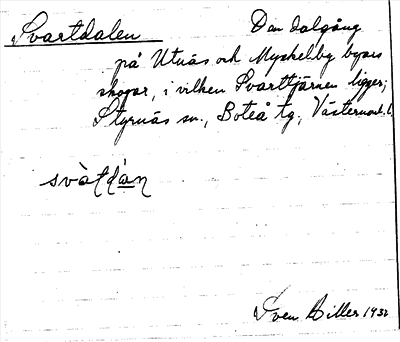 Svartdalen Den dalgång
på Utnäs och Myckelby byars
skogar, i vilken Svarttjärnen ligger;
Styrnäs sn., Boteå tg., Västernorrl. l.
svàtdàn
Sven Hiller 1932